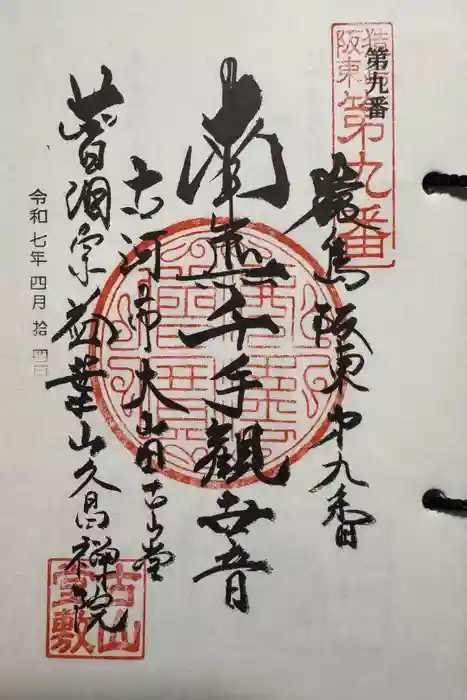 第九番
猿島
阪東
第九番
猿島阪東第九番
南無千手觀世音
古河市大山古山堂
曹洞宗葉山久昌禅院
令和七年四月拾四日
古山
堂敷